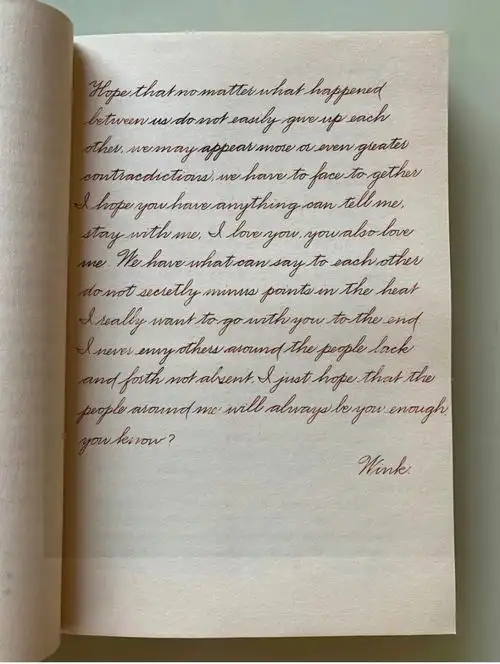 Hope that no matter what happened
between us do not easily give up each
other, we may appear more or even greater
contracdictions, we have to face to gether
I hope you have anything can tell me,
stay with me, I love you, you also love
me. We have what can say to each other
do not secretly minus points in the heat
I really want to go with you to the end.
I never envy others around the people back
and forth not absent. I just hope that the
people around me will always be you enough
you know?
Wink.